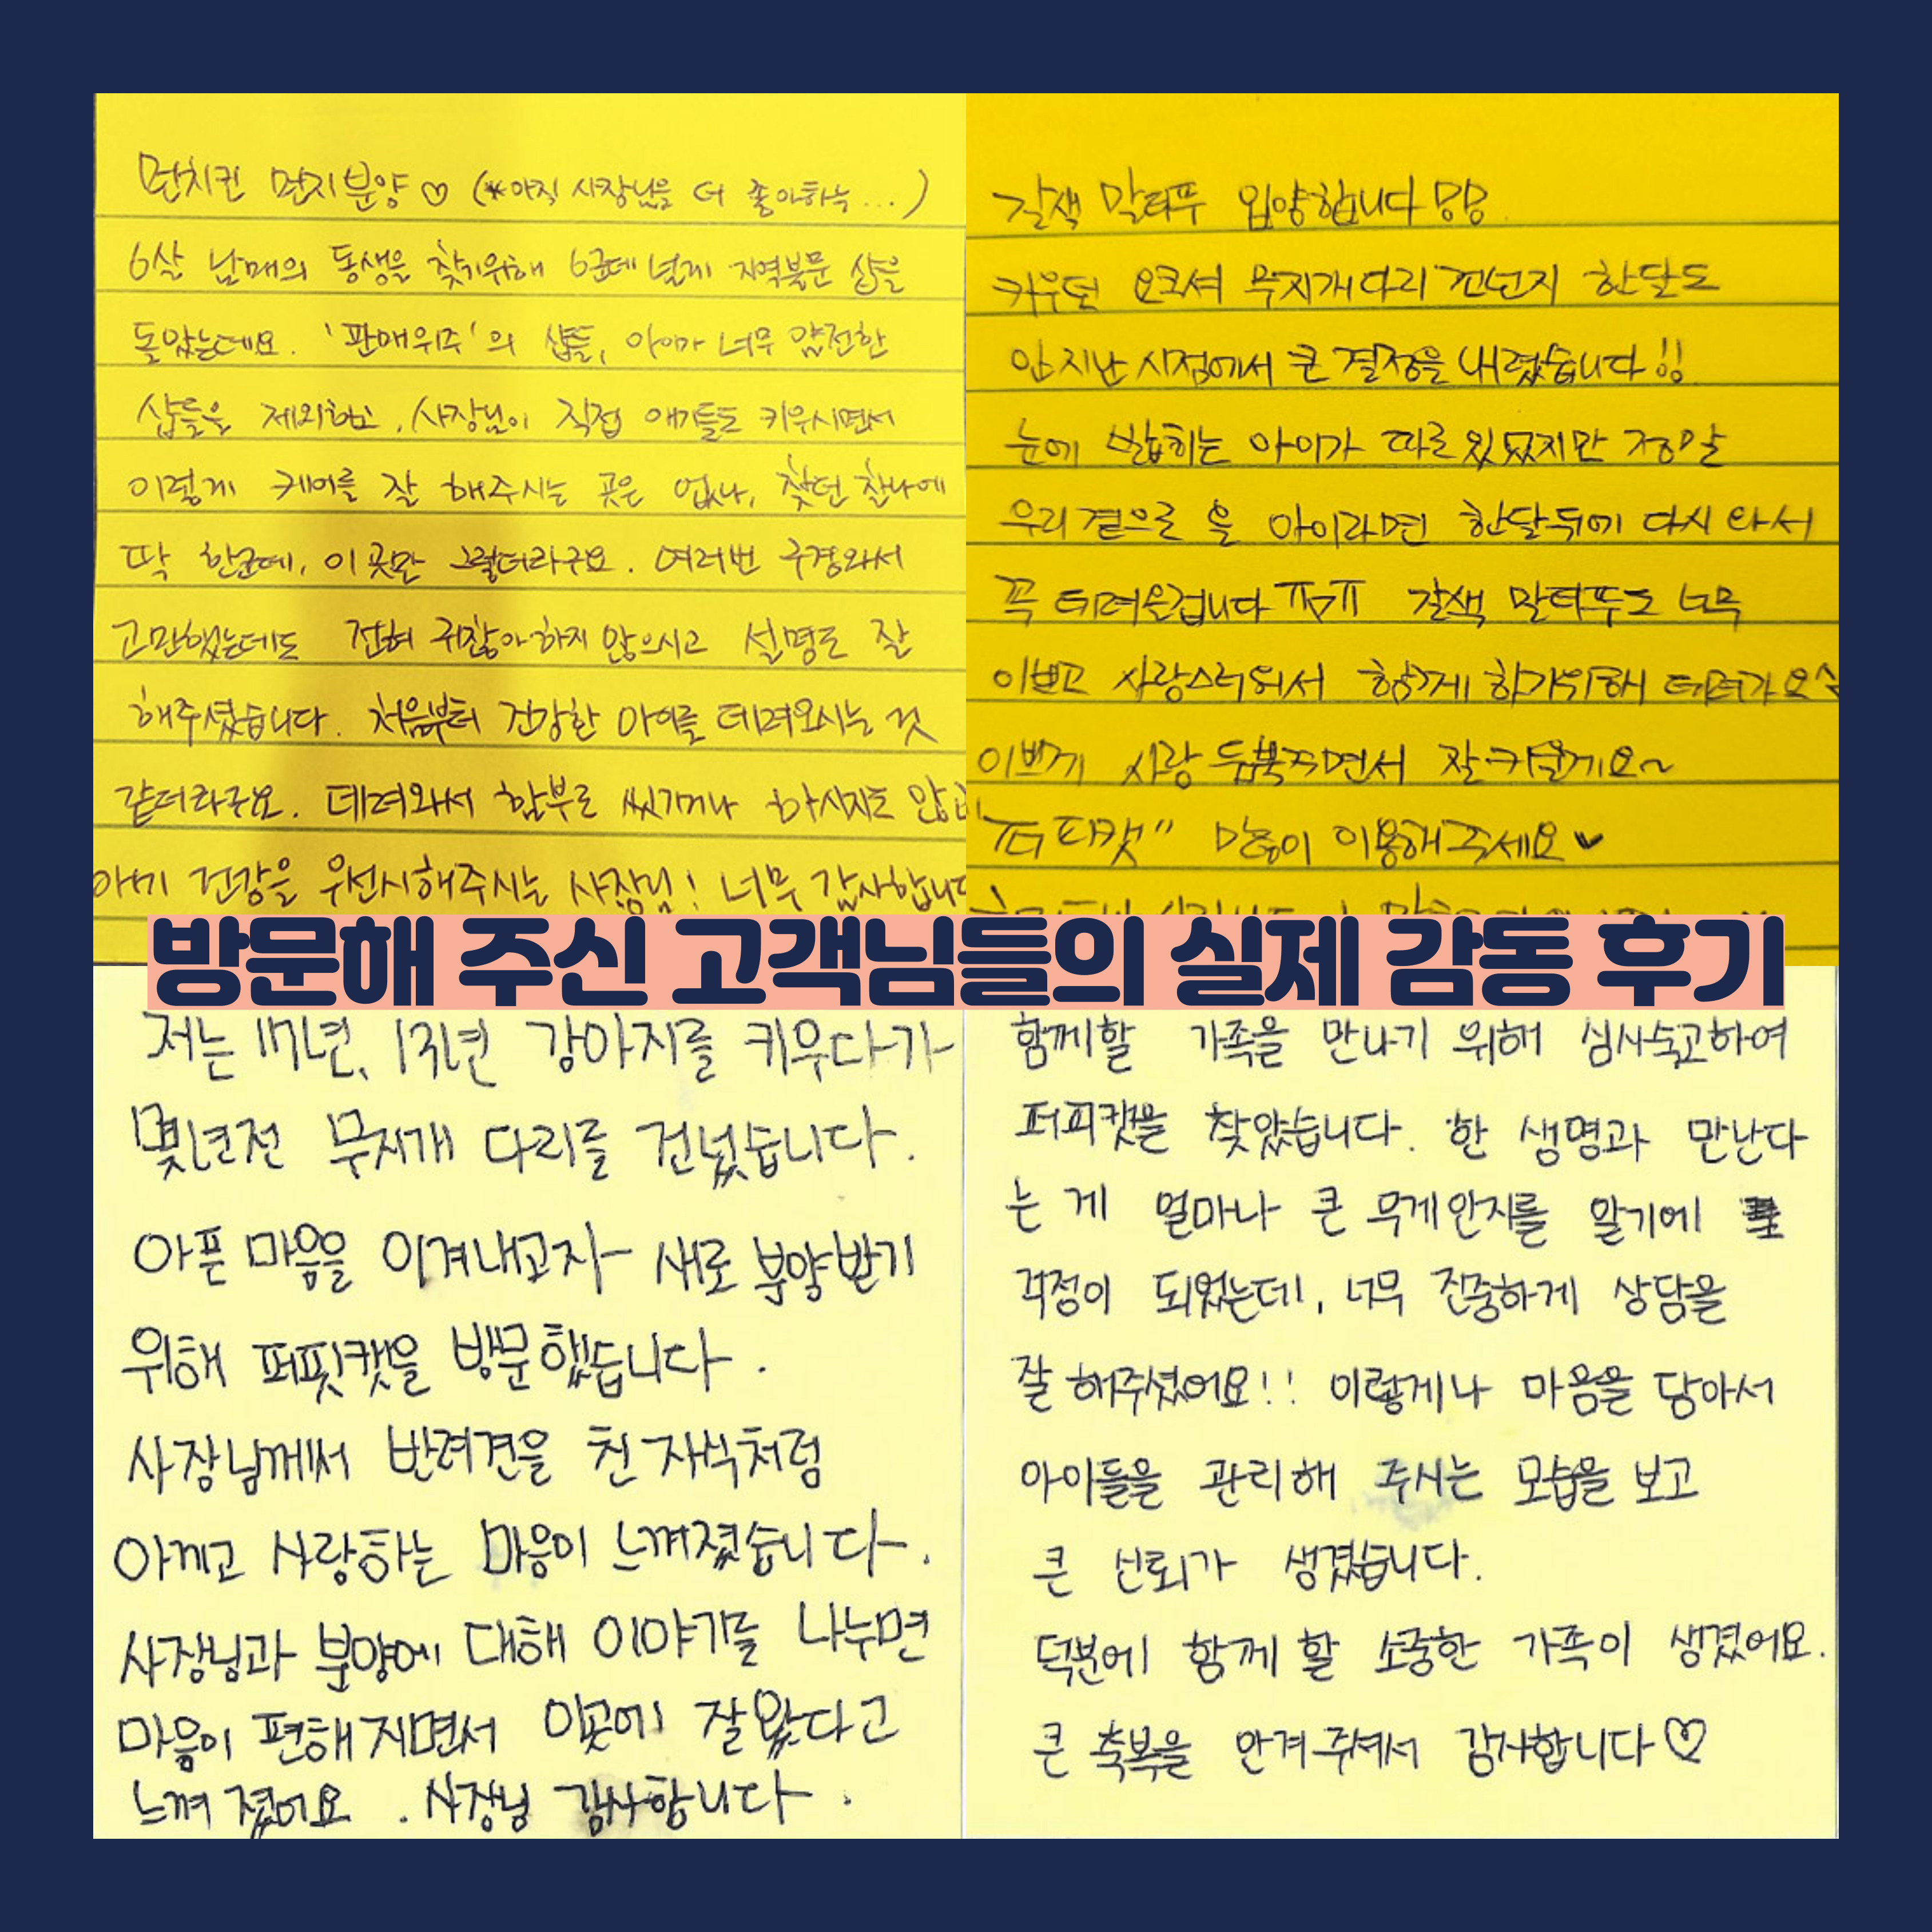 먼치킨 먼지분양♡ (*아직 사장님을 더 좋아하는...)
6살 남매의 동생을 찾기위해 6군데 넘게 지역불문 샵을
돌았는데요. '판매위주'의 샵들, 아이가 너무 얌전한
샵들을 제외하고, 사장님이 직접 애기들도 키우시면서
이렇게 케어를 잘 해주시는 곳은 없나, 찾던 찰나에
딱 한군데, 이 곳만 그렇더라구요. 여러번 구경와서
고민했는데도 전혀 귀찮아하지 않으시고 설명도 잘
해주셨습니다. 처음부터 건강한 아이를 데려오시는 것
같더라구요. 데려와서 함부로 씻기거나 하시지도 않고
아기 건강을 우선시해주시는 사장님! 너무 감사합니다
갈색 말티푸 입양합니다 멍멍
키우던 요크셔 무지개다리 건넌지 한달도
안지난 시점에서 큰 결정을 내렸습니다!!
눈에 밟히는 아이가 따로 있었지만 정말
우리곁으로 올 아이라면 한달뒤에 다시 와서
꼭 데려올겁니다 ㅠㅠ 갈색 말티푸도 너무
이쁘고 사랑스러워서 함께 하기위해 데려가요
이쁘게 사랑 듬뿍주면서 잘 키울게요~
"퍼피캣" 많이 이용해주세요♥
방문해 주신 고객님들의 실제 감동 후기
저는 17년, 13년 강아지를 키우다가
몇년전 무지개 다리를 건넜습니다.
아픈 마음을 이겨내고자 새로 분양받기
위해 퍼핏캣을 방문했습니다.
사장님께서 반려견을 친 자식처럼
아끼고 사랑하는 마음이 느껴졌습니다.
사장님과 분양에 대해 이야기를 나누면
마음이 편해지면서 이곳에 잘왔다고
느껴졌어요. 사장님 감사합니다.
함께할 가족을 만나기 위해 심사숙고하여
퍼피캣을 찾았습니다. 한 생명과 만난다
는 게 얼마나 큰 무게인지를 알기에
걱정이 되었는데, 너무 진중하게 상담을
잘 해주셨어요!! 이렇게나 마음을 담아서
아이들을 관리해 주시는 모습을 보고
큰 신뢰가 생겼습니다.
덕분에 함께 할 소중한 가족이 생겼어요.
큰 축복을 안겨주셔서 감사합니다♡